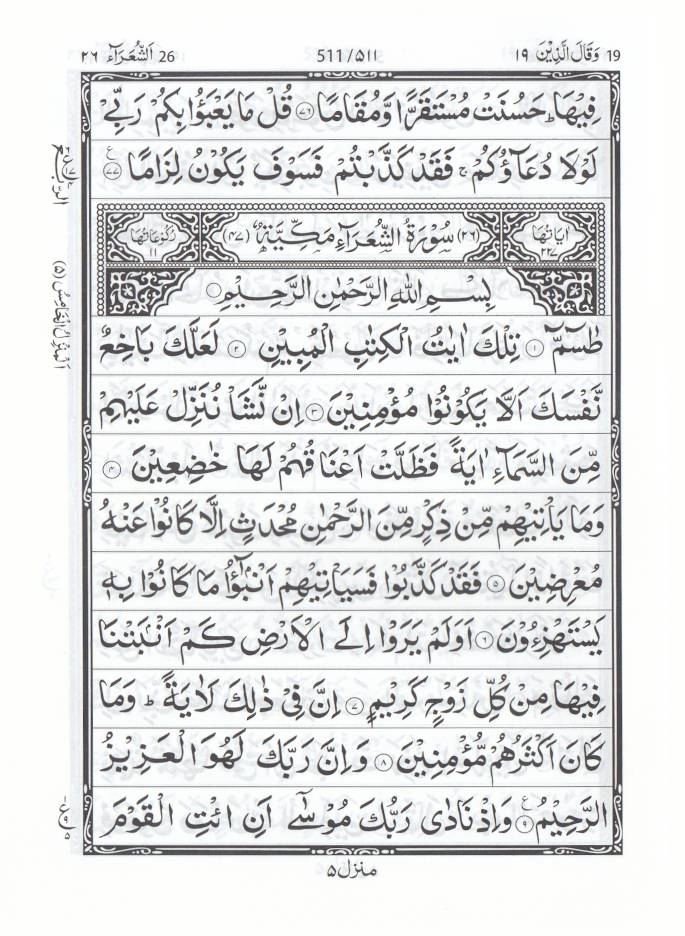 19 وَقَالَ الَّذِيْنَ ۱۹
511/۵۱۱
26 اَلشُّعَرَآء ۲۶
فِيْهَا ؕ حَسُنَتْ مُسْتَقَرًّا وَّمُقَامًا ۷۶ قُلْ مَا يَعْبَؤُا بِكُمْ رَبِّيْ
لَوْلَا دُعَآؤُكُمْ ۚ فَقَدْ كَذَّبْتُمْ فَسَوْفَ يَكُوْنُ لِزَامًا ۷۷ ع
اٰيَاتُهَا ۲۲۷
(۲۶) سُوْرَةُ الشُّعَرَآءِ مَكِّيَّةٌ (۴۷)
رُكُوْعَاتُهَا ۱۱
بِسْمِ اللّٰهِ الرَّحْمٰنِ الرَّحِيْمِ
طٰسٓمّٓ ۱ تِلْكَ اٰيٰتُ الْكِتٰبِ الْمُبِيْنِ ۲ لَعَلَّكَ بَاخِعٌ
نَّفْسَكَ اَلَّا يَكُوْنُوْا مُؤْمِنِيْنَ ۳ اِنْ نَّشَاْ نُنَزِّلْ عَلَيْهِمْ
مِّنَ السَّمَآءِ اٰيَةً فَظَلَّتْ اَعْنَاقُهُمْ لَهَا خٰضِعِيْنَ ۴
وَمَا يَاْتِيْهِمْ مِّنْ ذِكْرٍ مِّنَ الرَّحْمٰنِ مُحْدَثٍ اِلَّا كَانُوْا عَنْهُ
مُعْرِضِيْنَ ۵ فَقَدْ كَذَّبُوْا فَسَيَاْتِيْهِمْ اَنْۢبٰٓؤُا مَا كَانُوْا بِهٖ
يَسْتَهْزِءُوْنَ ۶ اَوَلَمْ يَرَوْا اِلَى الْاَرْضِ كَمْ اَنْۢبَتْنَا
فِيْهَا مِنْ كُلِّ زَوْجٍ كَرِيْمٍ ۷ اِنَّ فِيْ ذٰلِكَ لَاٰيَةً ؕ وَمَا
كَانَ اَكْثَرُهُمْ مُّؤْمِنِيْنَ ۸ وَاِنَّ رَبَّكَ لَهُوَ الْعَزِيْزُ
الرَّحِيْمُ ۹ ع وَاِذْ نَادٰى رَبُّكَ مُوْسٰٓى اَنِ ائْتِ الْقَوْمَ
اَلْمَنْزِلُ الْخَامِسُ (۵)
ع ۹ ۵
منزل ۵